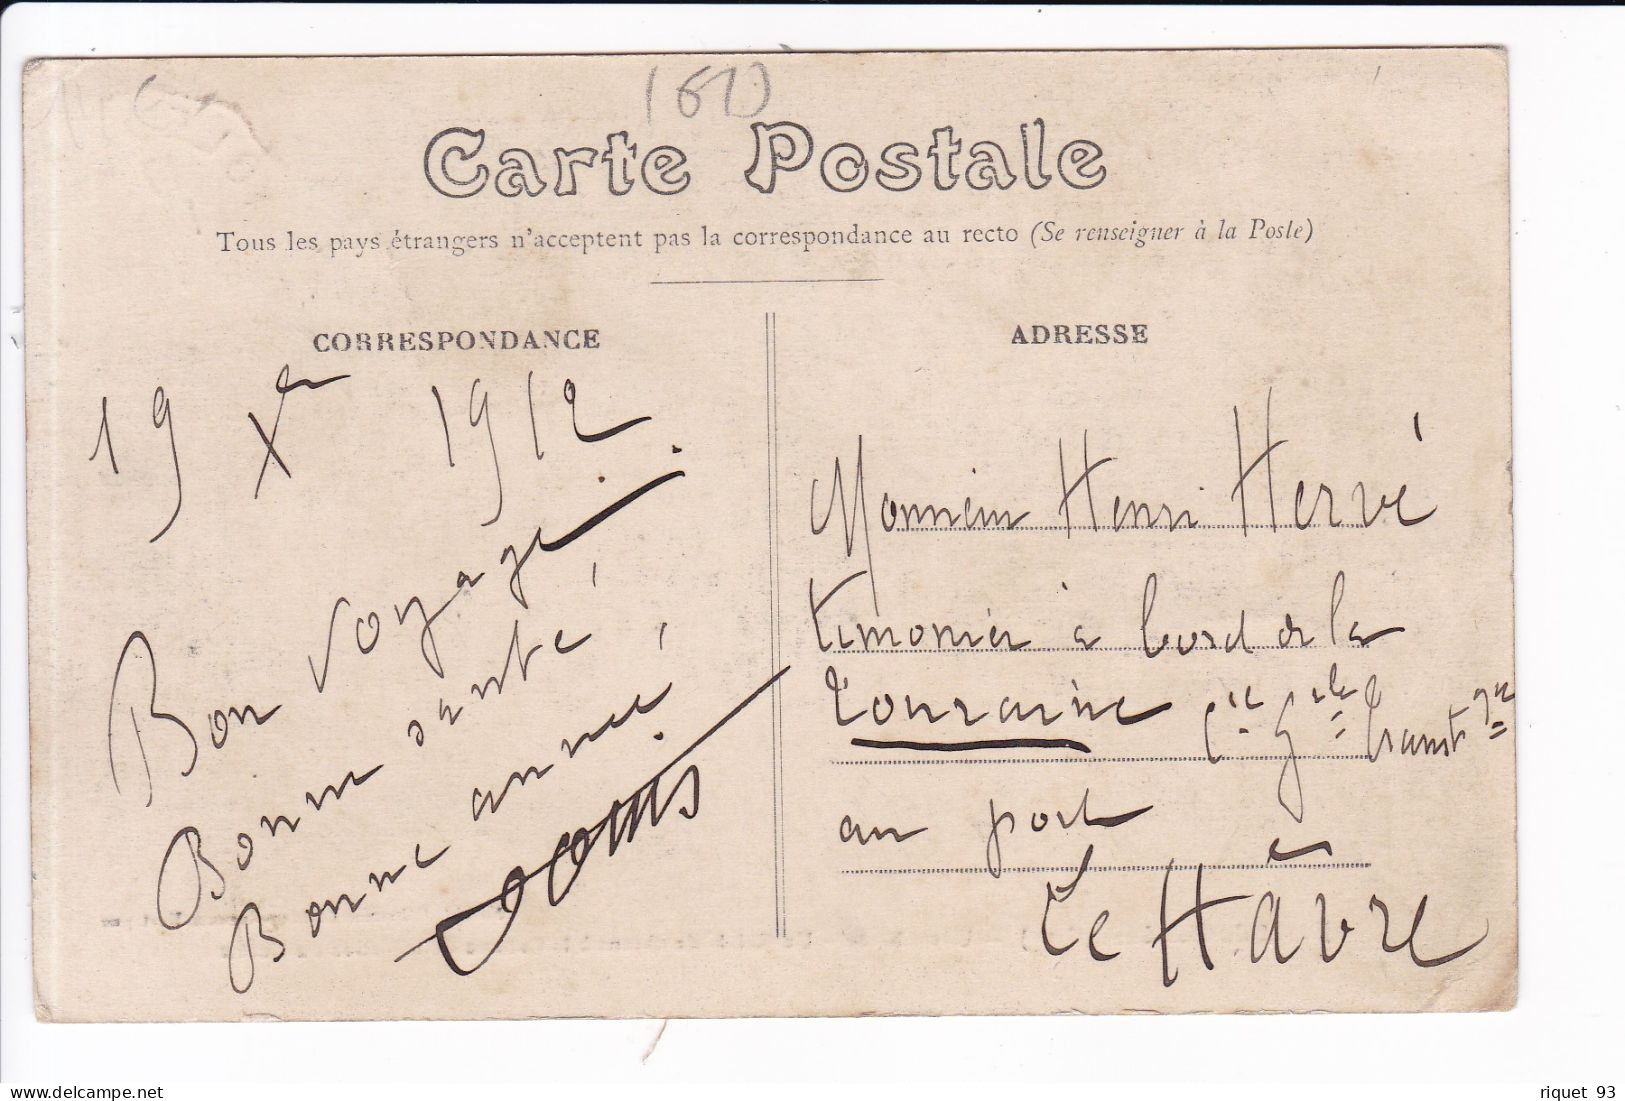 Carte Postale
Tous les pays étrangers n'acceptent pas la correspondance au recto (Se renseigner à la Poste)
CORRESPONDANCE
19 Xer 1912.
Bon voyage.
Bonne santé,
Bonne année,
ADRESSE
Monsieur Henri Hervé
timonier à bord de la
Touraine Cie Gle Transatque
au port
Le Hâvre
riquet 93